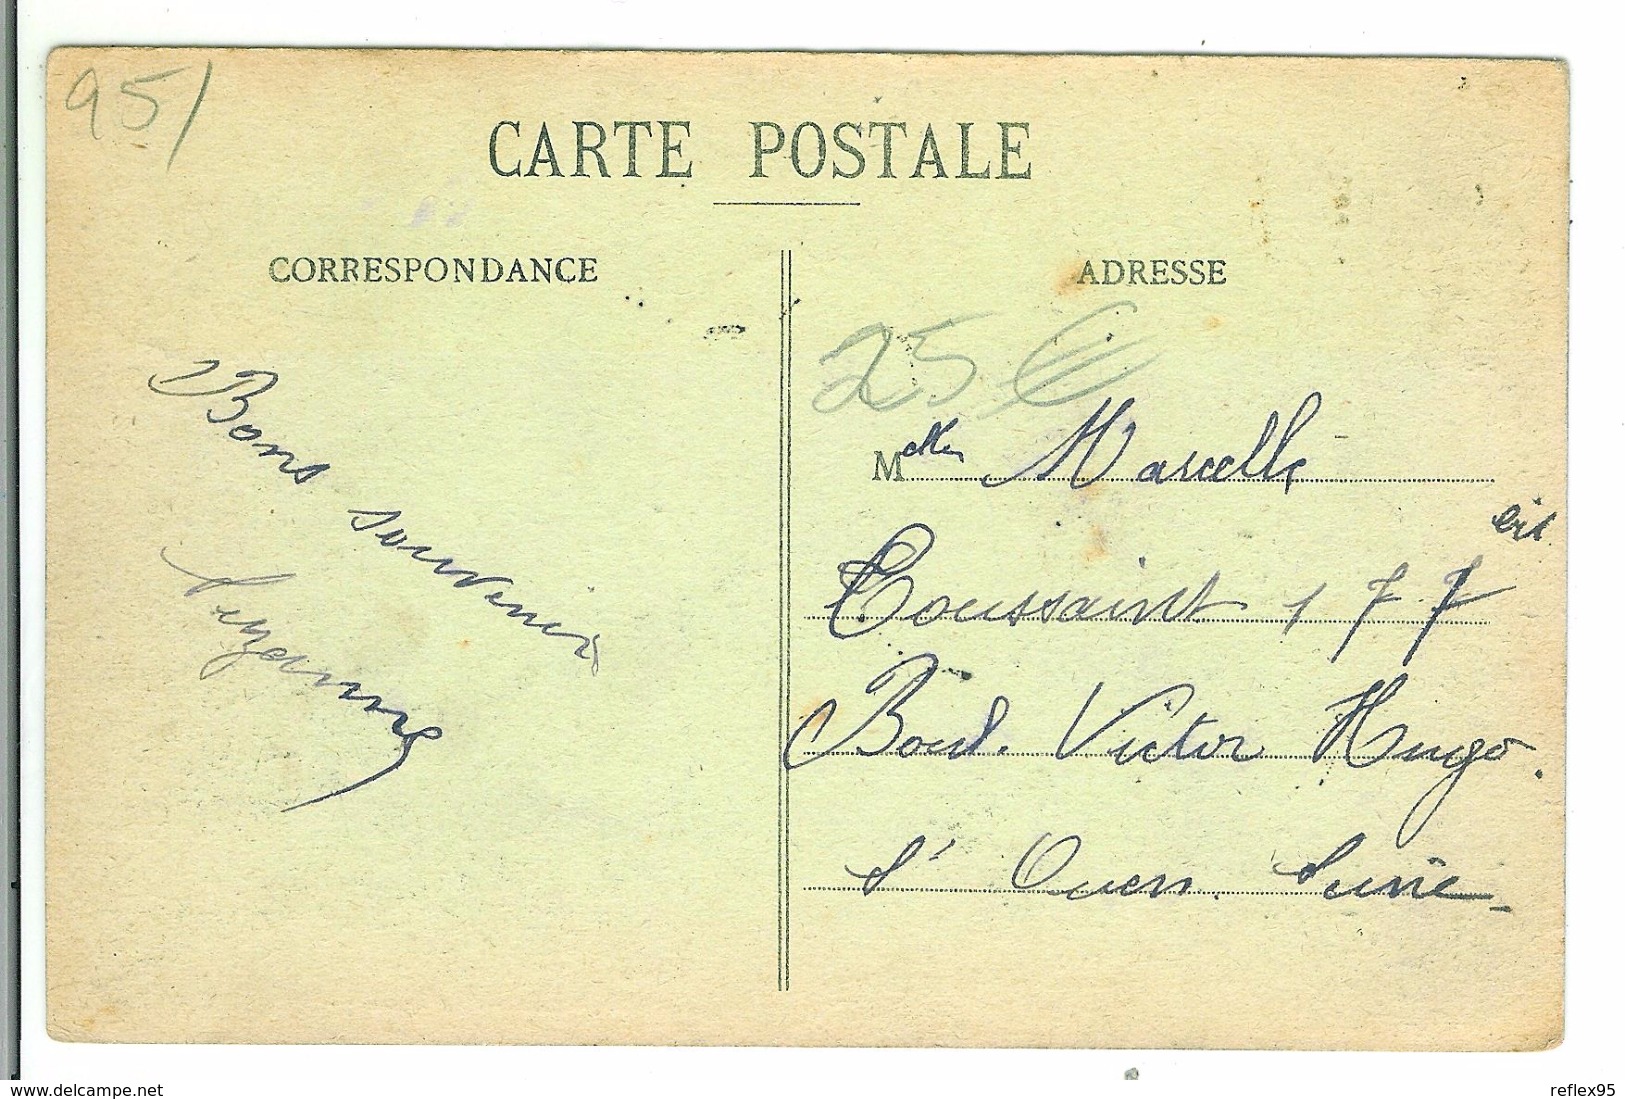 95/
CARTE POSTALE
CORRESPONDANCE
ADRESSE
25 €
Bons souvenirs
Suzanne
Melle Marcelle
Toussaint 177 bis
Boul. Victor Hugo.
St Ouen. Seine
www.delcampe.net
reflex95